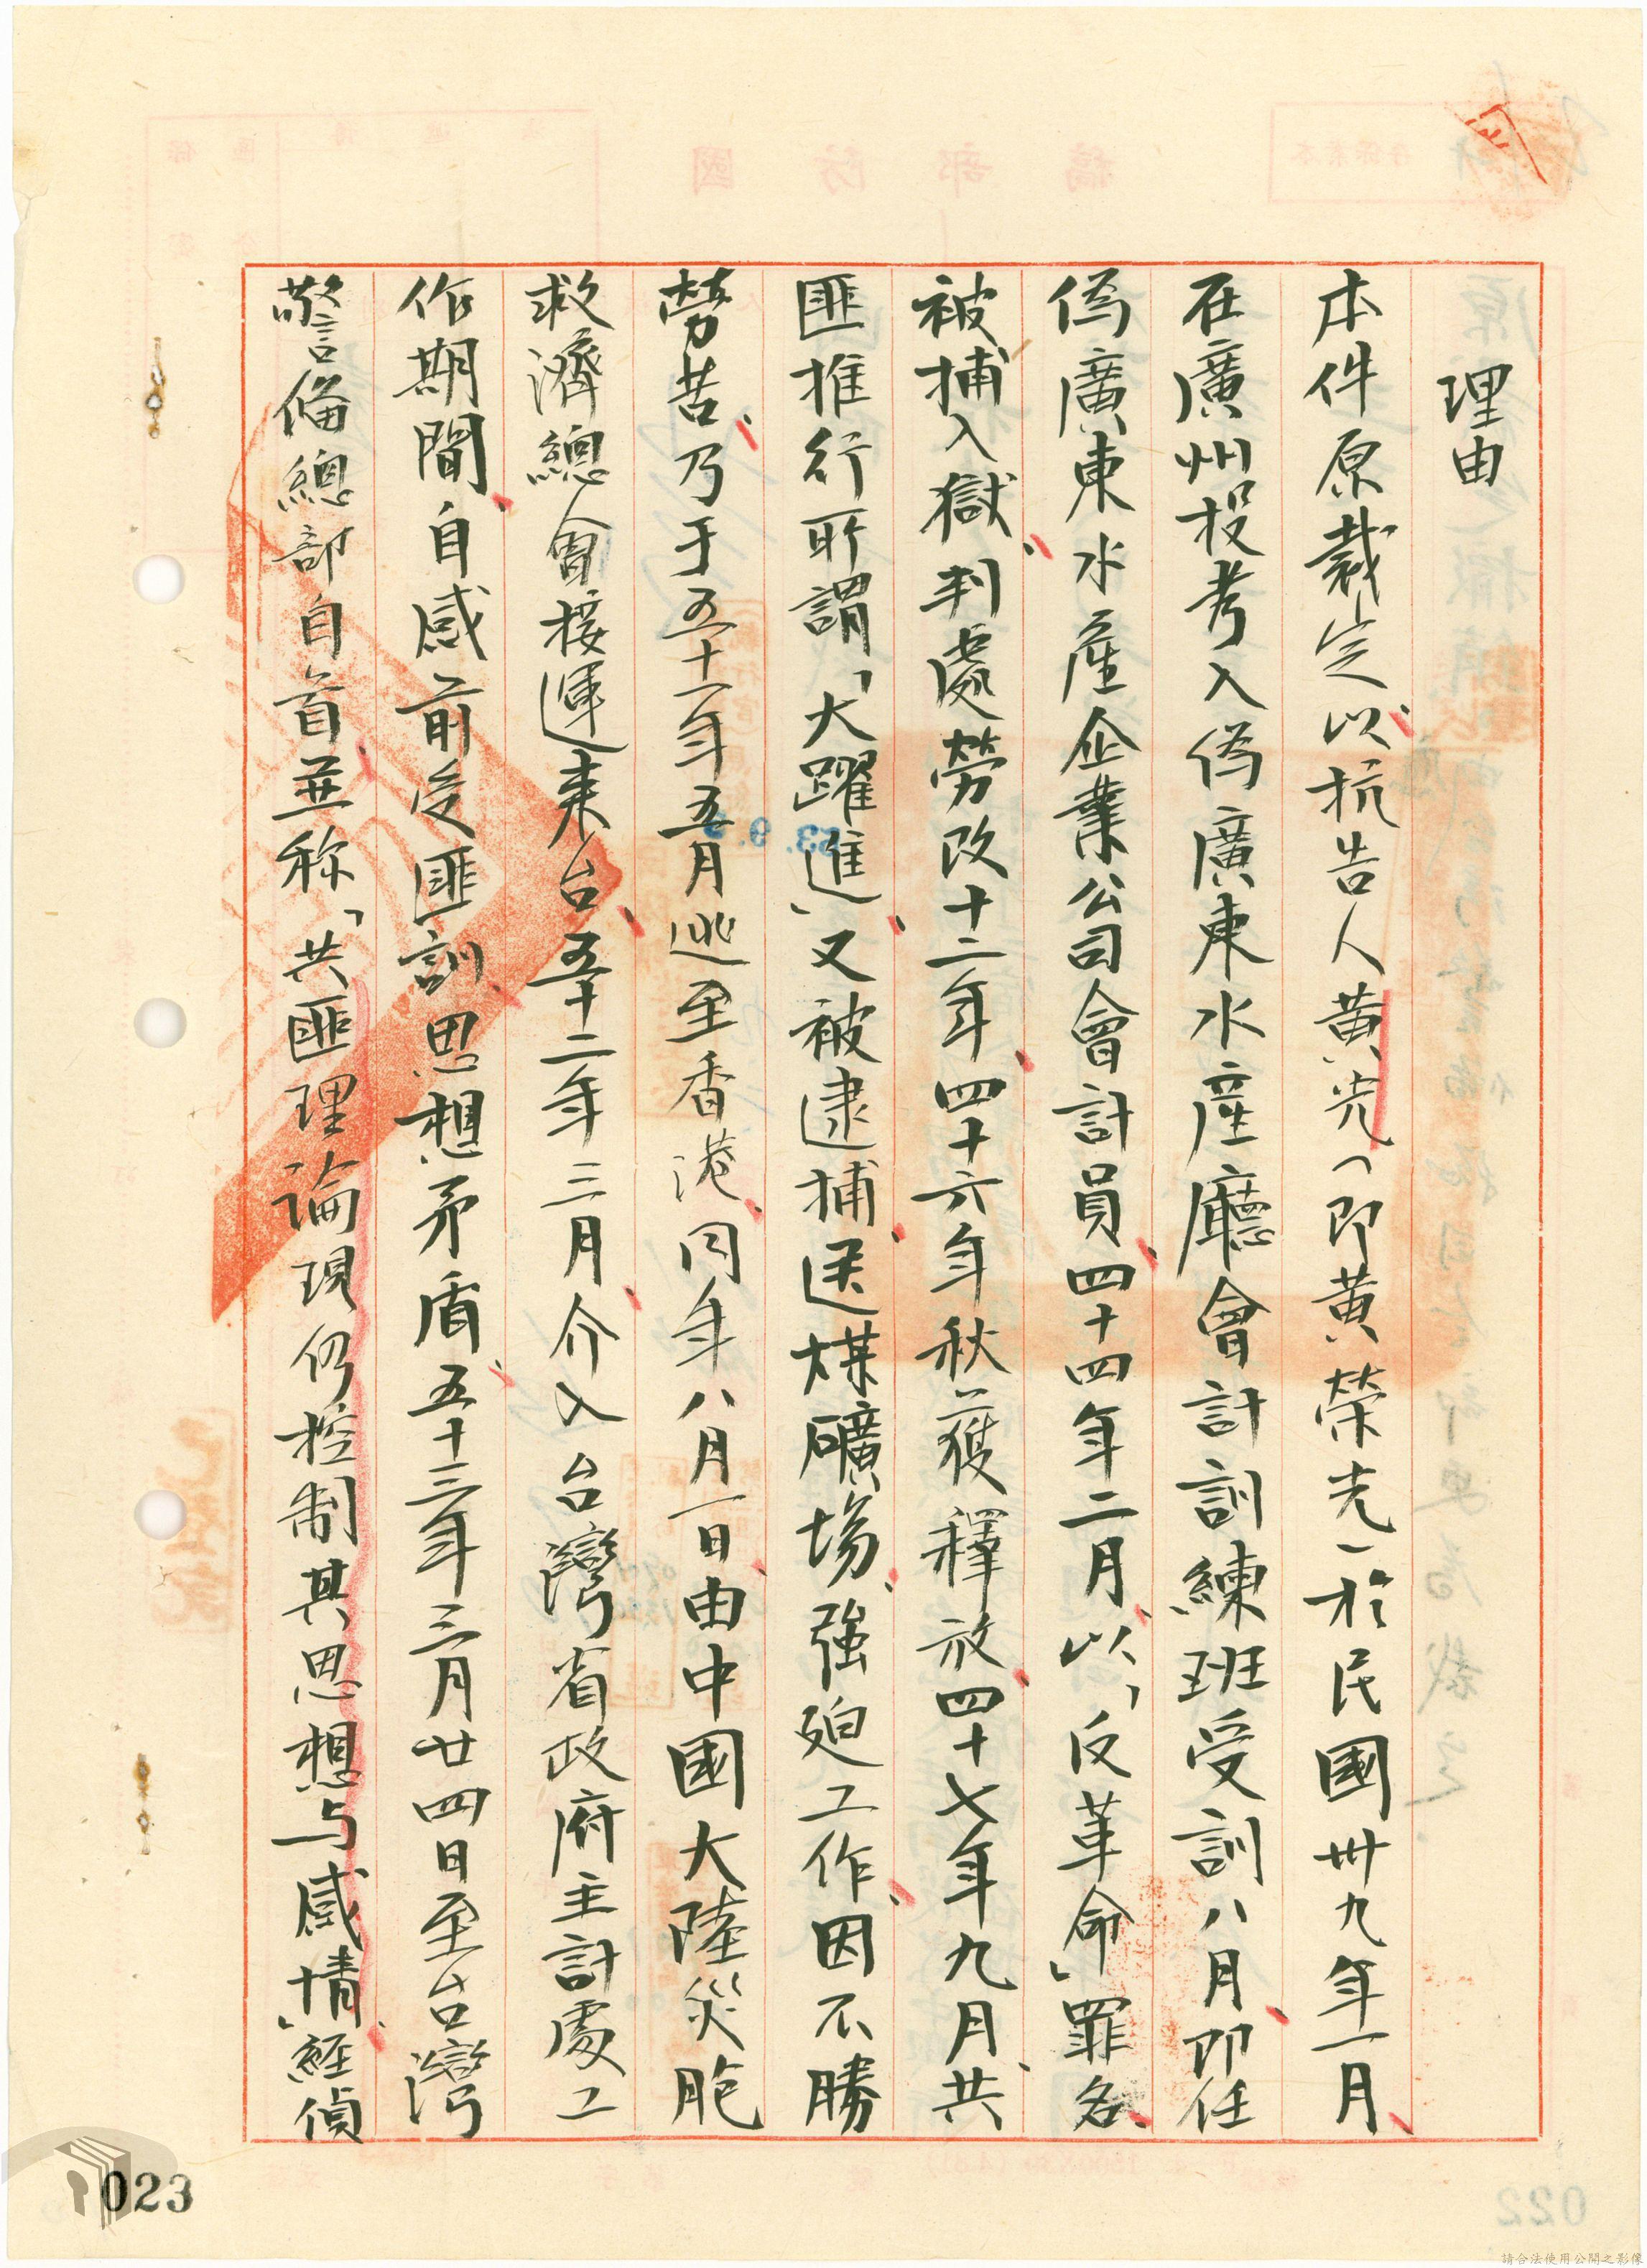 理由
本件原裁定以抗告人黃光（即黃榮光）於民國卅九年一月
在廣州投考入偽廣東水產廳會計訓練班受訓八月、即任
偽廣東水產企業公司會計員、四十四年二月、以「反革命」罪名、
被捕入獄、判處勞改十二年、四十六年秋獲釋放、四十七年九月、共
匪推行所謂「大躍進」、又被逮捕、送煤礦場、強迫工作、因不勝
勞苦、乃于五十一年五月逃至香港、同年八月一日、由中國大陸災胞
救濟總會接運來台、五十二年三月、介入台灣省政府主計處工
作期間、自感前受匪訓、思想矛盾、五十三年三月廿四日至台灣
警備總部自首、並称「共匪理論現仍控制其思想与感情」、經偵
023
022
稿部防國
53. 9. 9
請合法使用公開之影像